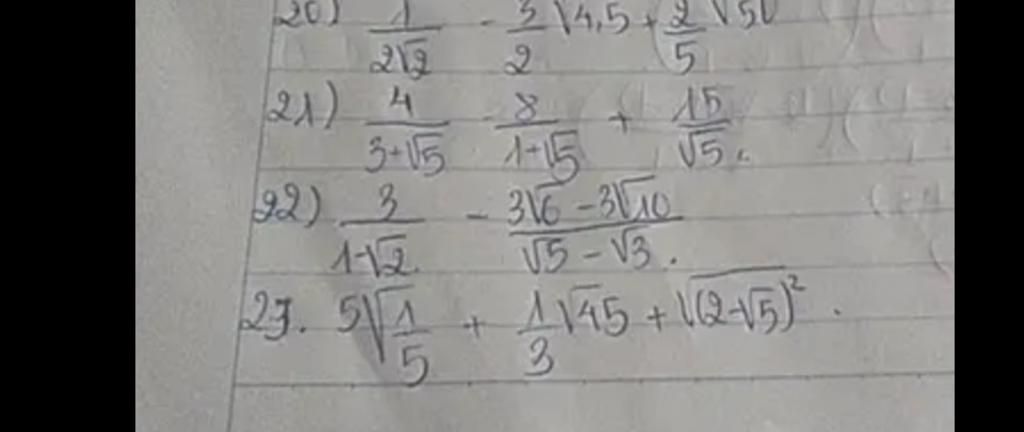 20) 1/(2√2) - 3/2 √4,5 + 2/5 √50
21) 4/(3+√5) - 8/(1+√5) + 15/√5.
22) 3/(1-√2) - (3√6 - 3√10)/(√5 - √3).
23. 5√(1/5) + 1/3 √45 + √((2-√5)²).